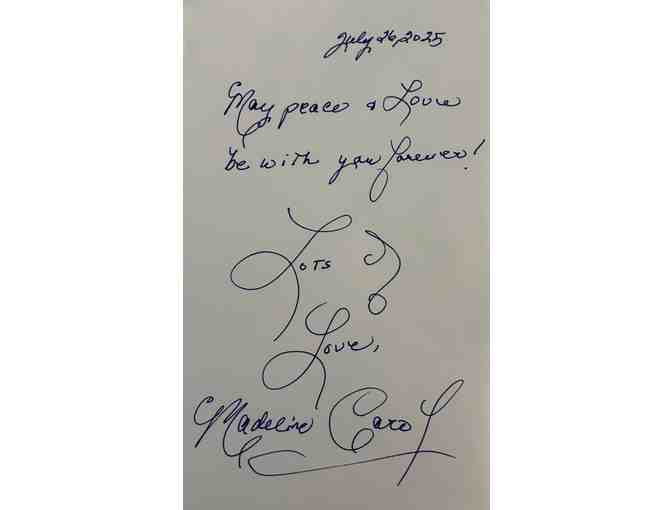 July 26, 2025
May peace & Love
be with you forever!
Lots of
Love,
Madeline Carol